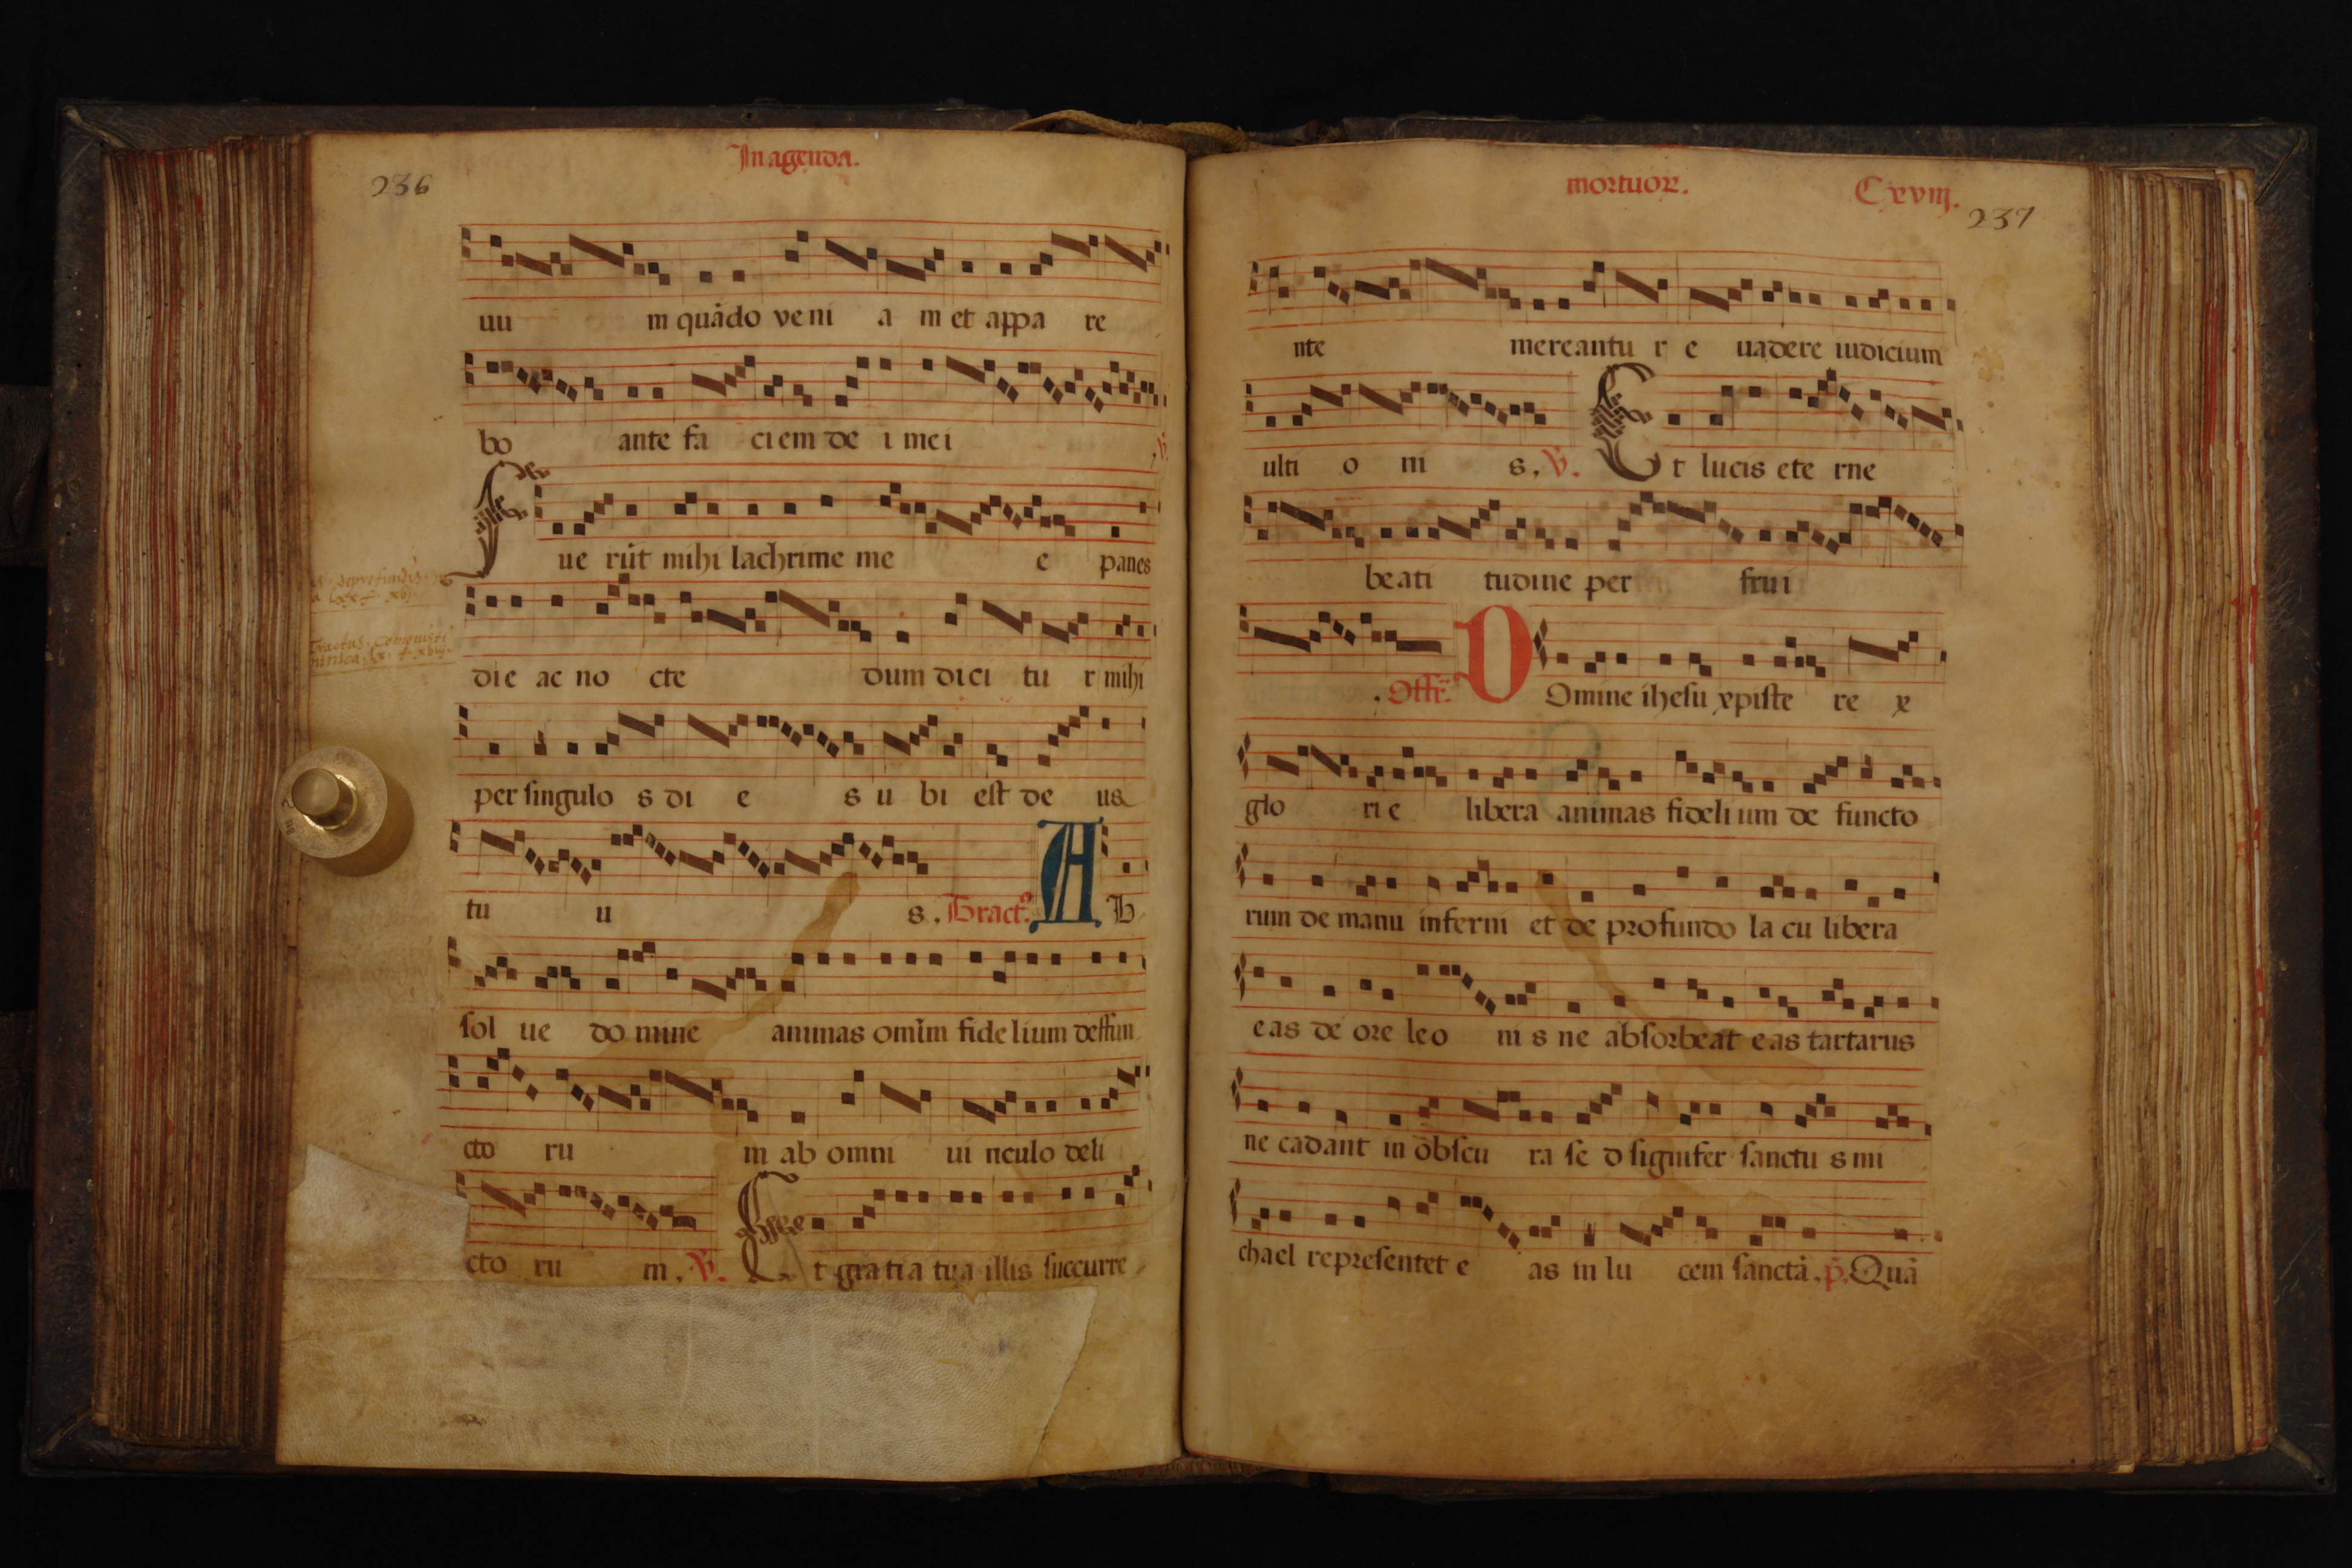 236
In agenda.
uu m quãdo veni a m et appa re
bo ante fa ciem de i mei ℣.
F ue rũt mihi lachrime me e panes
die ac no cte dum dici tu r mihi
per singulo s di e s u bi est de us
tu u s. Tract⁹. A B
sol ue do mine animas omĩm fide lium deffun
cto ru m ab omni ui nculo deli
cto ru m. ℣. E t gratia tua illis succurre
mortuoꝝ. Cxviij.
237
nte mereantu r e uadere iudicium
ulti o ni s. ℣. E t lucis ete rne
beati tudine per frui
. Offr̃. D Omine ihesu xpiste re x
glo ri e libera animas fideli um de functo
rum de manu inferni et de profundo la cu libera
eas de ore leo ni s ne absorbeat eas tartarus
ne cadant in obscu ra se d signifer sanctu s mi
chael representet e as in lu cem sanctã. p̃. Quã